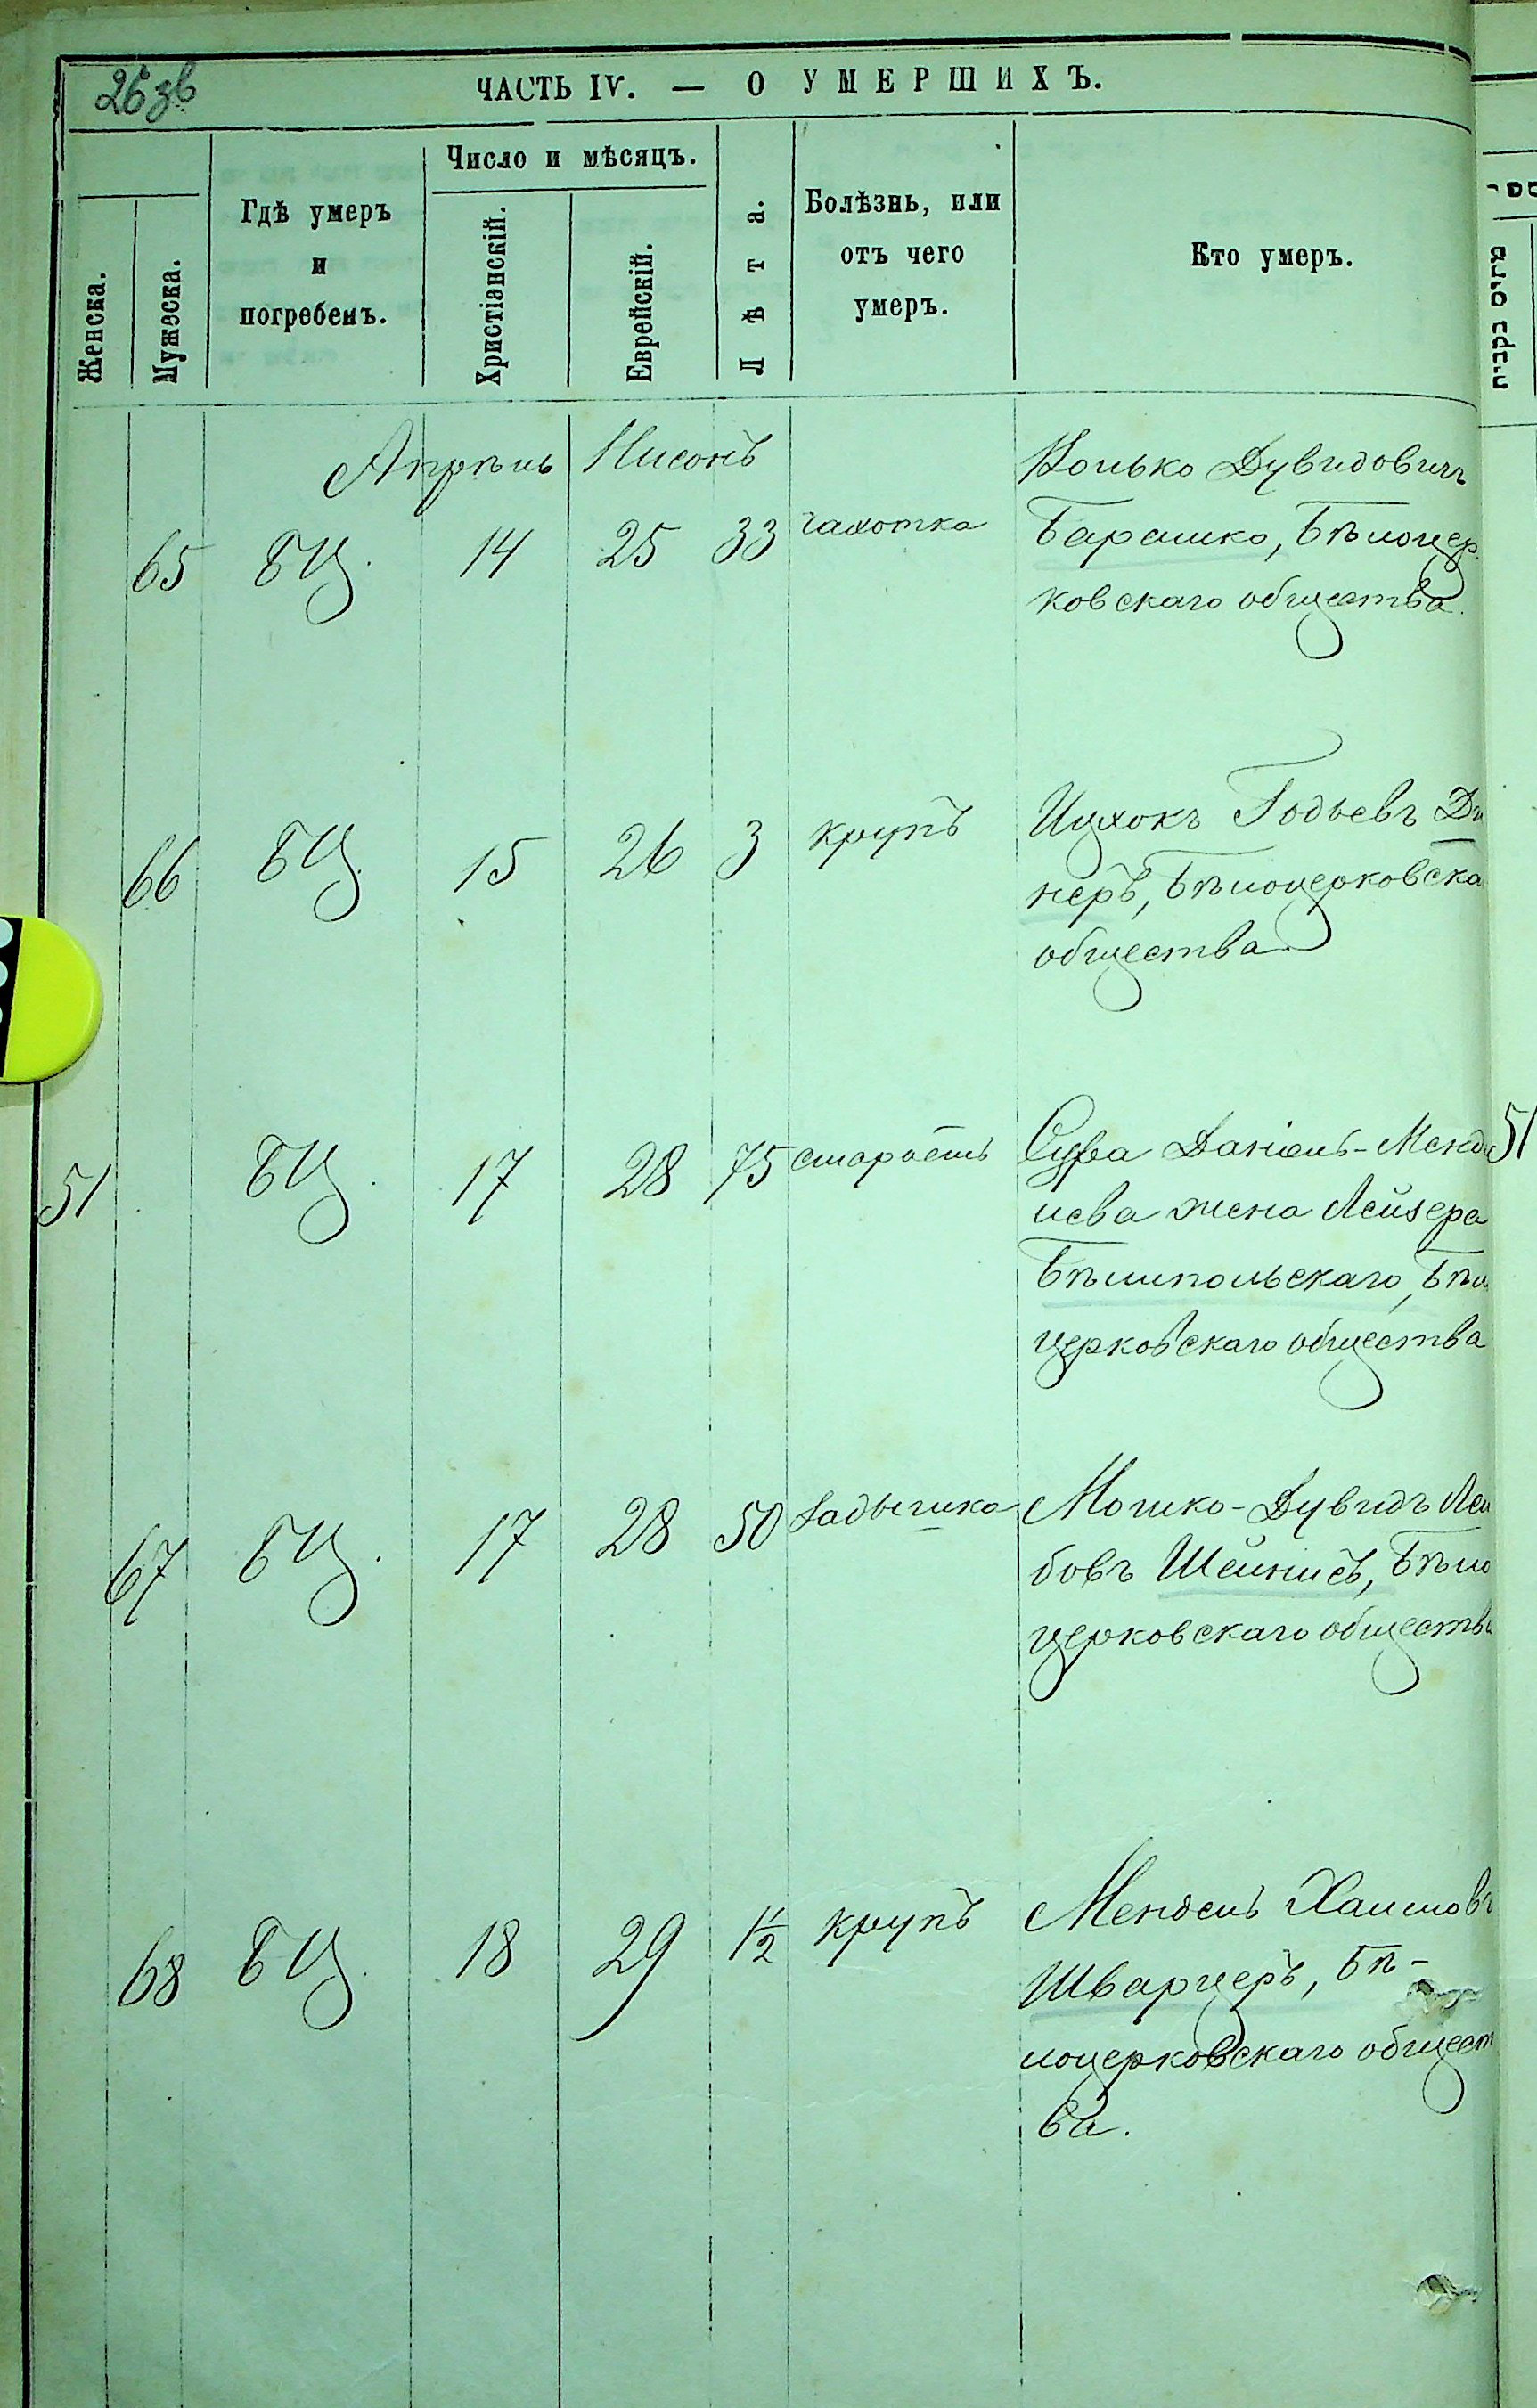 26 зв
ЧАСТЬ IV. — О УМЕРШИХЪ.
Женска.
Мужеска.
Гдѣ умеръ
и
погребенъ.
Число и мѣсяцъ.
Христіанскій.
Еврейскій.
Лѣта.
Болѣзнь, или
отъ чего
умеръ.
Кто умеръ.
Апрѣль Нисонъ
65 БЦ. 14 25 33 чахотка
Дувидовичъ
Барашко, Бѣлоцер-
ковскаго общества.
66 БЦ. 15 26 3 крупъ
Ицхокъ Годьевъ Ди
неръ, Бѣлоцерковска
общества
51 БЦ. 17 28 75 старость
Сура Даніель-Менд
лева жена Лейзера
Бѣлипольскаго, Бѣл
церковскаго общества
67 БЦ. 17 28 50 Задышка
Мошко-Дувидъ Лей
бовъ Шейнисъ, Бѣло
церковскаго общества
68 БЦ. 18 29 1½ крупъ
Мендель Хаимовъ
Шварцеръ, Бѣ-
лоцерковскаго общест
ва.
51